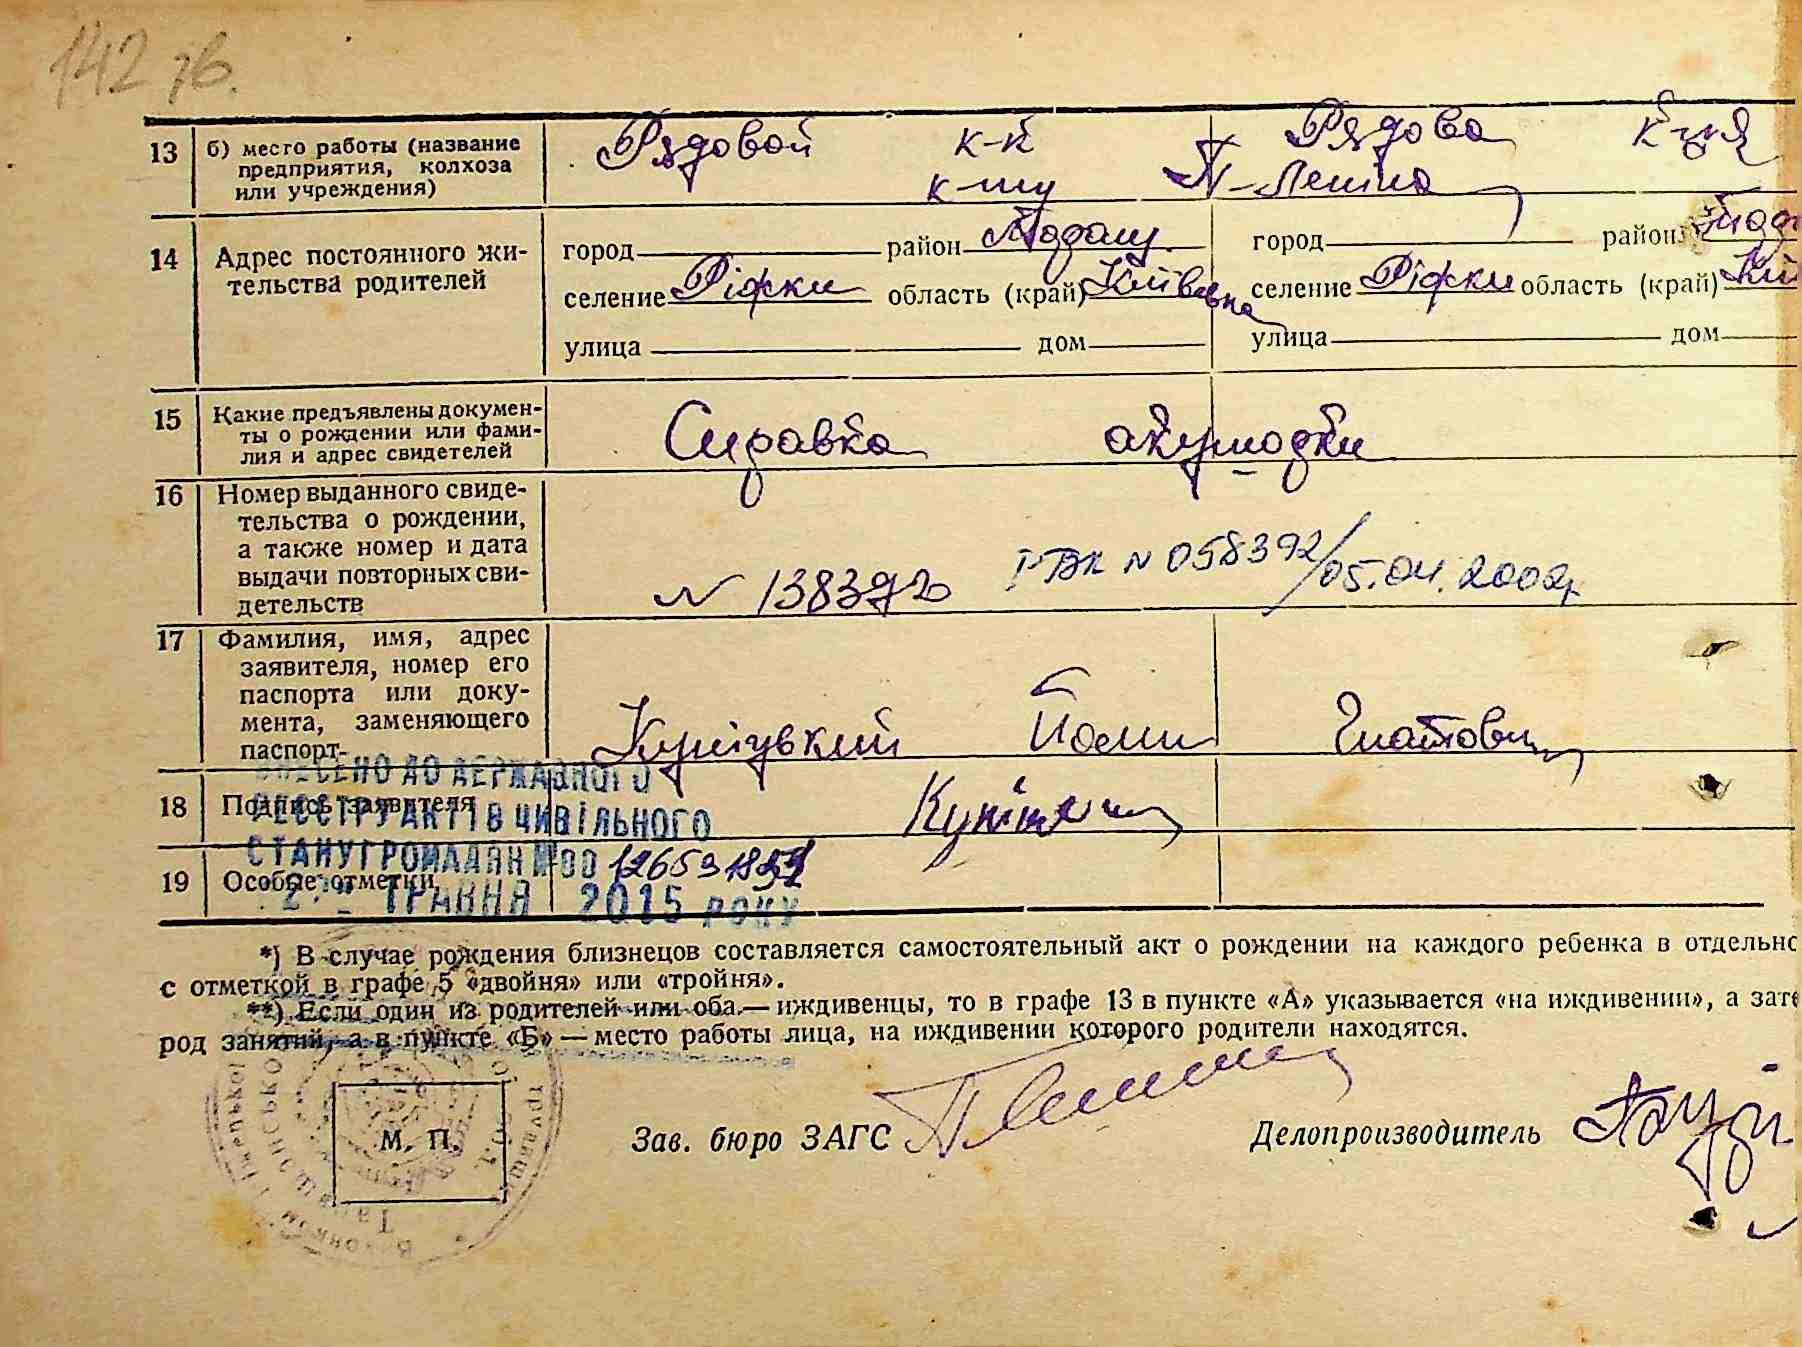 142 зв.
13 б) место работы (название предприятия, колхоза или учреждения) Рядовой к-к Рядова к-ця
к-пу Леніна
14 Адрес постоянного жительства родителей
город район город район
селение Ріжки область (край) Київська селение Ріжки область (край) Киї
улица дом улица дом
15 Какие предъявлены документы о рождении или фамилия и адрес свидетелей Справка акушорки
16 Номер выданного свидетельства о рождении, а также номер и дата выдачи повторных свидетельств N 138392 І-БК N 058392/05.04.2002р
17 Фамилия, имя, адрес заявителя, номер его паспорта или документа, заменяющего паспорт Гнатович
ВНЕСЕНО ДО ДЕРЖАВНОГО
18 Подпись заявителя
РЕЄСТРУ АКТІВ ЦИВІЛЬНОГО
СТАНУ ГРОМАДЯН № 00
19 Особые отметки
ТРАВНЯ 2015 РОКУ
*) В случае рождения близнецов составляется самостоятельный акт о рождении на каждого ребенка в отдельно
с отметкой в графе 5 «двойня» или «тройня».
**) Если один из родителей или оба — иждивенцы, то в графе 13 в пункте «А» указывается «на иждивении», а зате
род занятий, а в пункте «Б» — место работы лица, на иждивении которого родители находятся.
М. П.
Зав. бюро ЗАГС Делопроизводитель